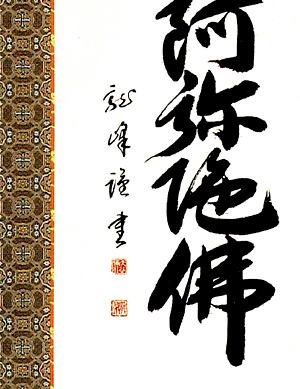 阿弥陀佛
龍峰謹書